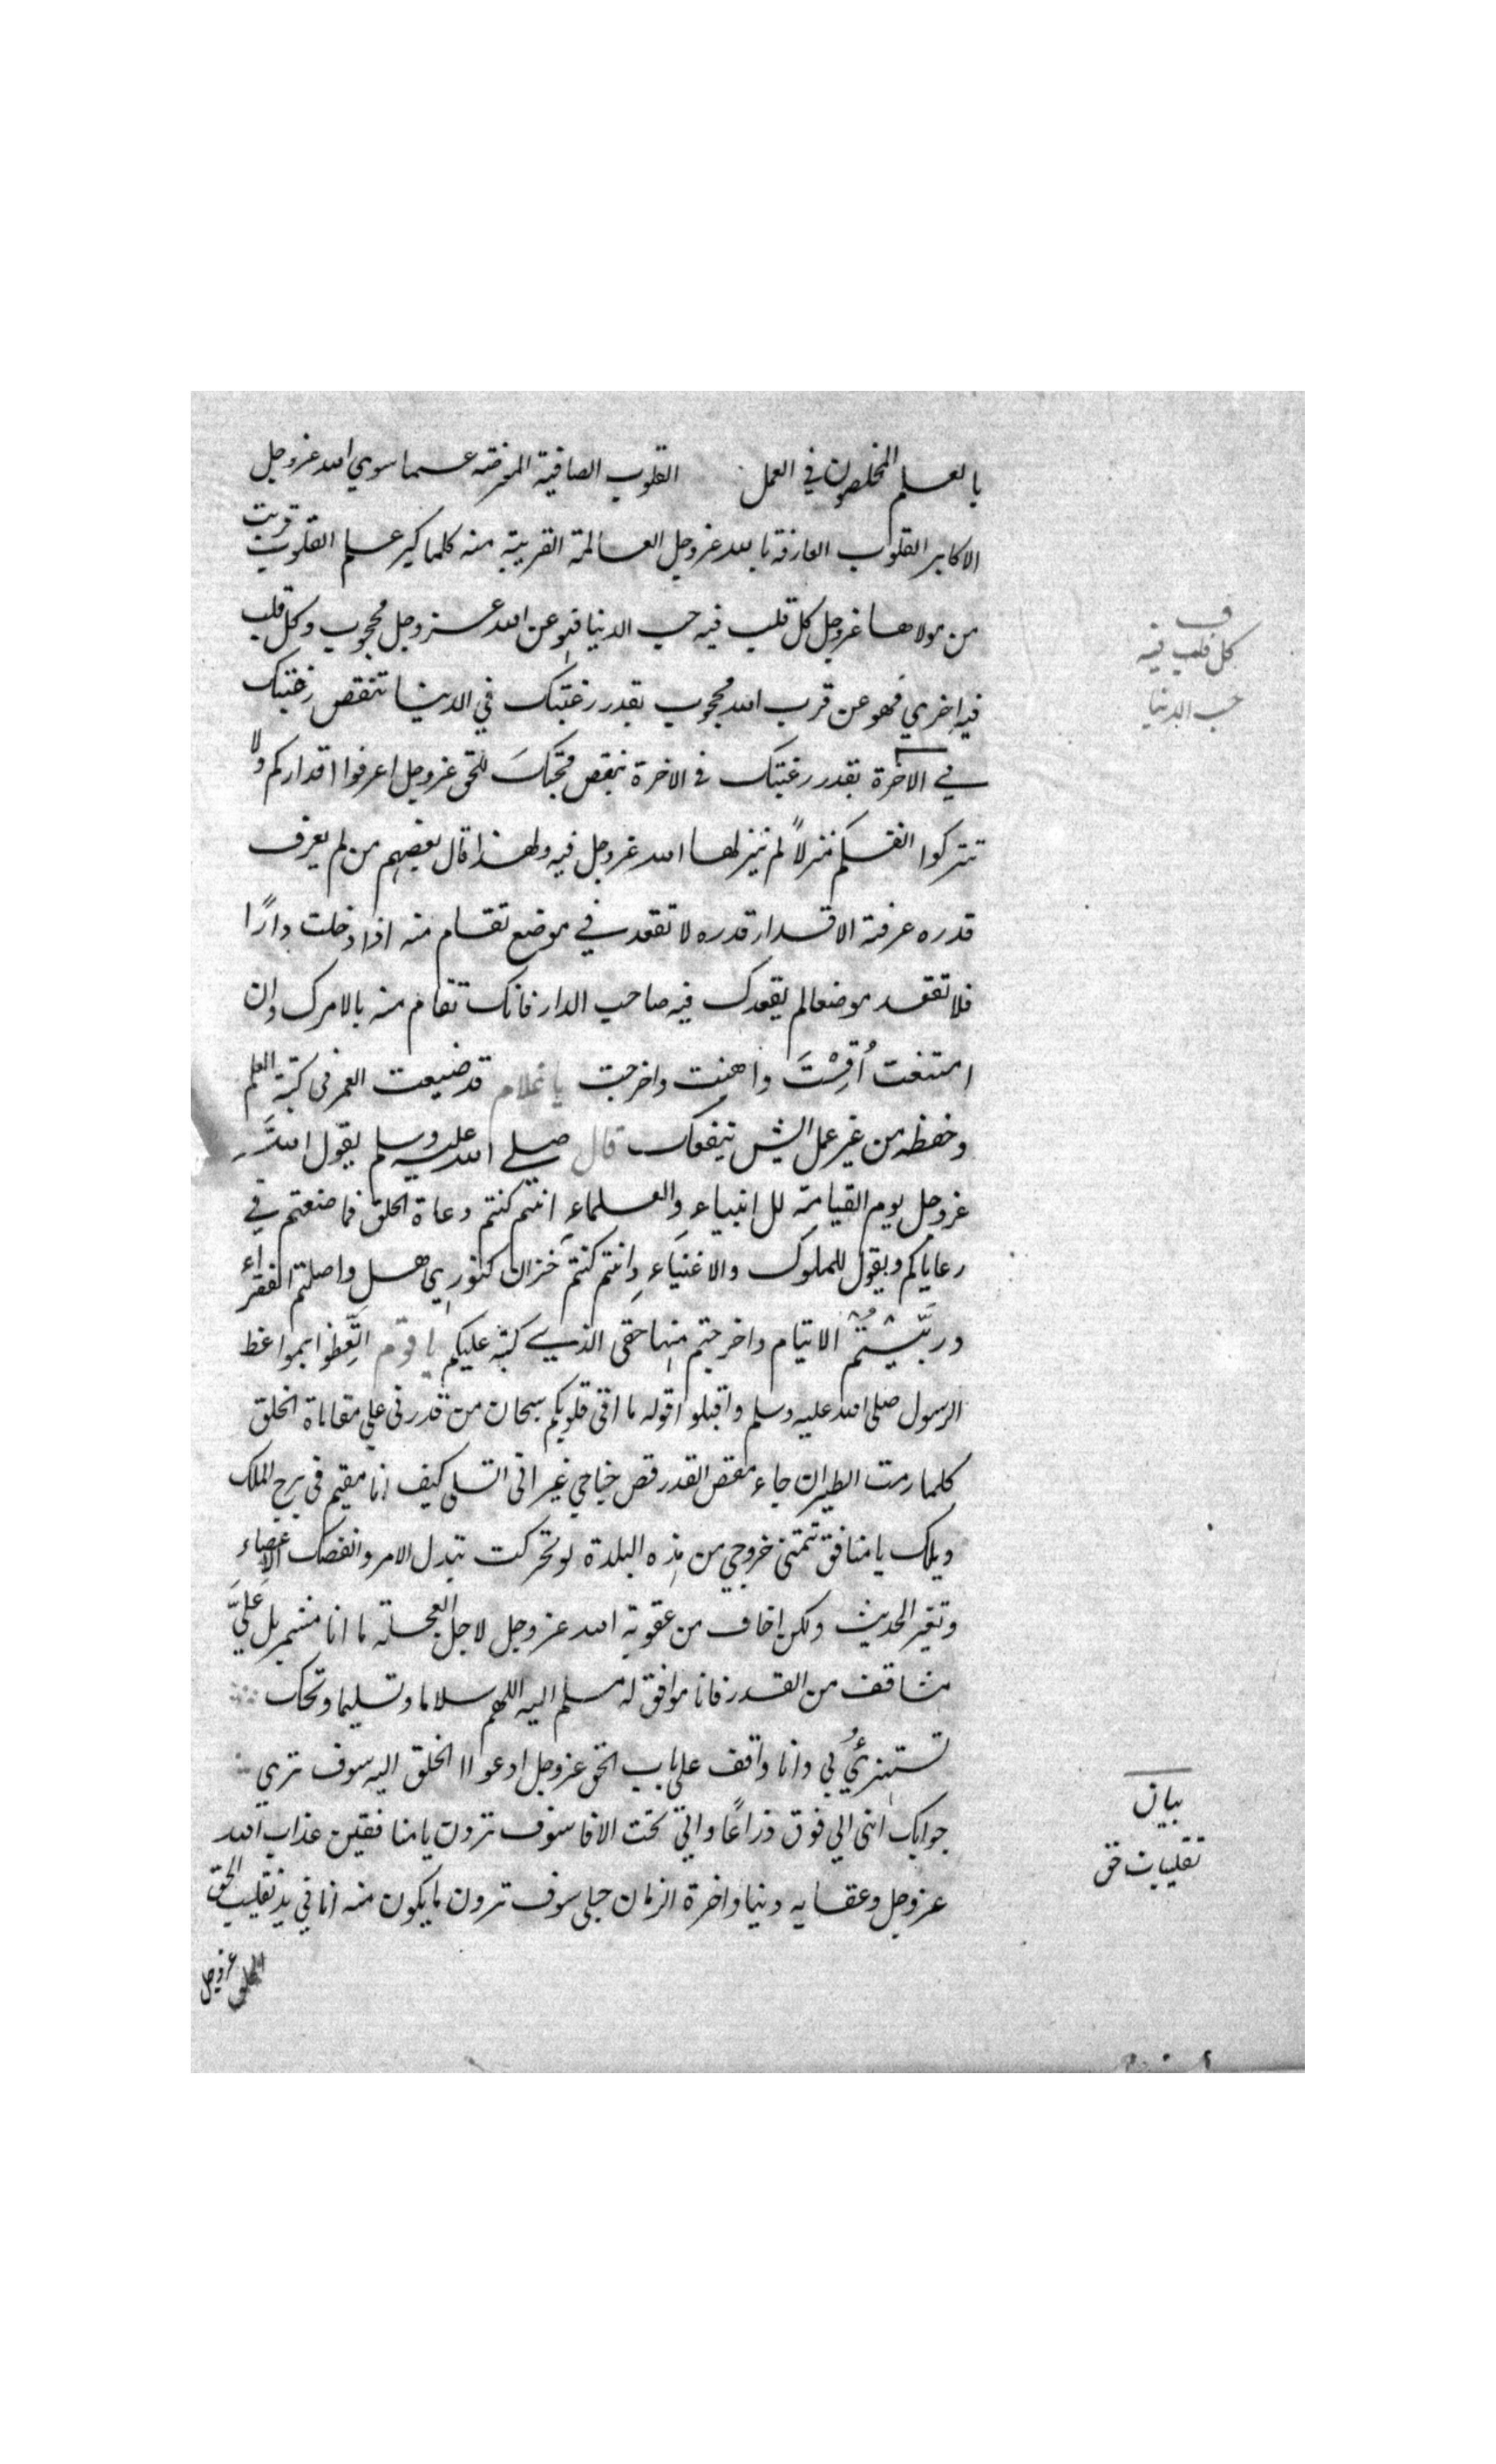 بالعلم المخلصون في العمل القلوب الصافية المعرضة عما سوي الله عز وجل
الاكابر القلوب العارفة بالله عز وجل العالمة القريبة منه كلما كبر علم القلوب قربت
من مولاها عز وجل كل قلب فيه حب الدنيا فهو عن الله عز وجل محجوب وكل قلب
فيه اخري فهو عن قرب الله محجوب بقدر رغبتك في الدنيا تنقص رغبتك
في الاخرة بقدر رغبتك في الاخرة ينقص محبتك للحق عز وجل اعرفوا اقداركم ولا
تتركوا انفسكم منزلاً لم ينزلها الله عز وجل فيه ولهذا قال بعضهم من لم يعرف
قدره عرفته الاقدار قدره لا تقعد في موضع تقام منه اذا دخلت دارًا
فلا تقعد موضعا لم يقعدك فيه صاحب الدار فانك تقام منه بالامرك وان
امتنعت أُقِمْتَ واهنت واخرجت يا غلام قد ضيعت العمر في كتبة العلم
وحفظه من غير عمل ايش ينفعك قال صلى الله عليه وسلم يقول الله
عز وجل يوم القيامة للانبياء والعلماء انتم كنتم دعاة الخلق فما صنعتم في
رعاياكم ويقول للملوك والاغنياء وانتم كنتم خزان كنوزي هل واصلتم الفقراء
وربَّيتُم الايتام واخرجتم منها حقي الذي كتبته عليكم يا قوم اتَّعِظوا بمواعظ
الرسول صلى الله عليه وسلم واقبلوا قوله ما اقسى قلوبكم سبحان من قدرني علي مقاساة الخلق
كلما رمت الطيران جاء مقص القدر قص جناحي غير اني اتسلى كيف انا مقيم في برج الملك
ويلك يا منافق تتمنى خروجي من هذه البلدة لو تحركت تبدل الامر وانفصلت الاعضاء
وتغير الحديث ولكن اخاف من عقوبة الله عز وجل لاجل العجلة ما انا متشمر بل عليَّ
مشاقف من القدر فانا موافق له مسلم اليه اللهم سلاما وتسليما ويحك
تستهزئُ بي وانا واقف علي باب الحق عز وجل ادعوا الخلق اليه سوف تري
جوابك انى الي فوق ذراعًا والي تحت الافا سوف ترون يا منافقين عذاب الله
عز وجل وعقابه دنيا واخرة الزمان حبلى سوف ترون ما يكون منه انا في يد تقليب الحق
عز وجل
ف
كل قلب فيه
حب الدنيا
بيان
تقليبات حق